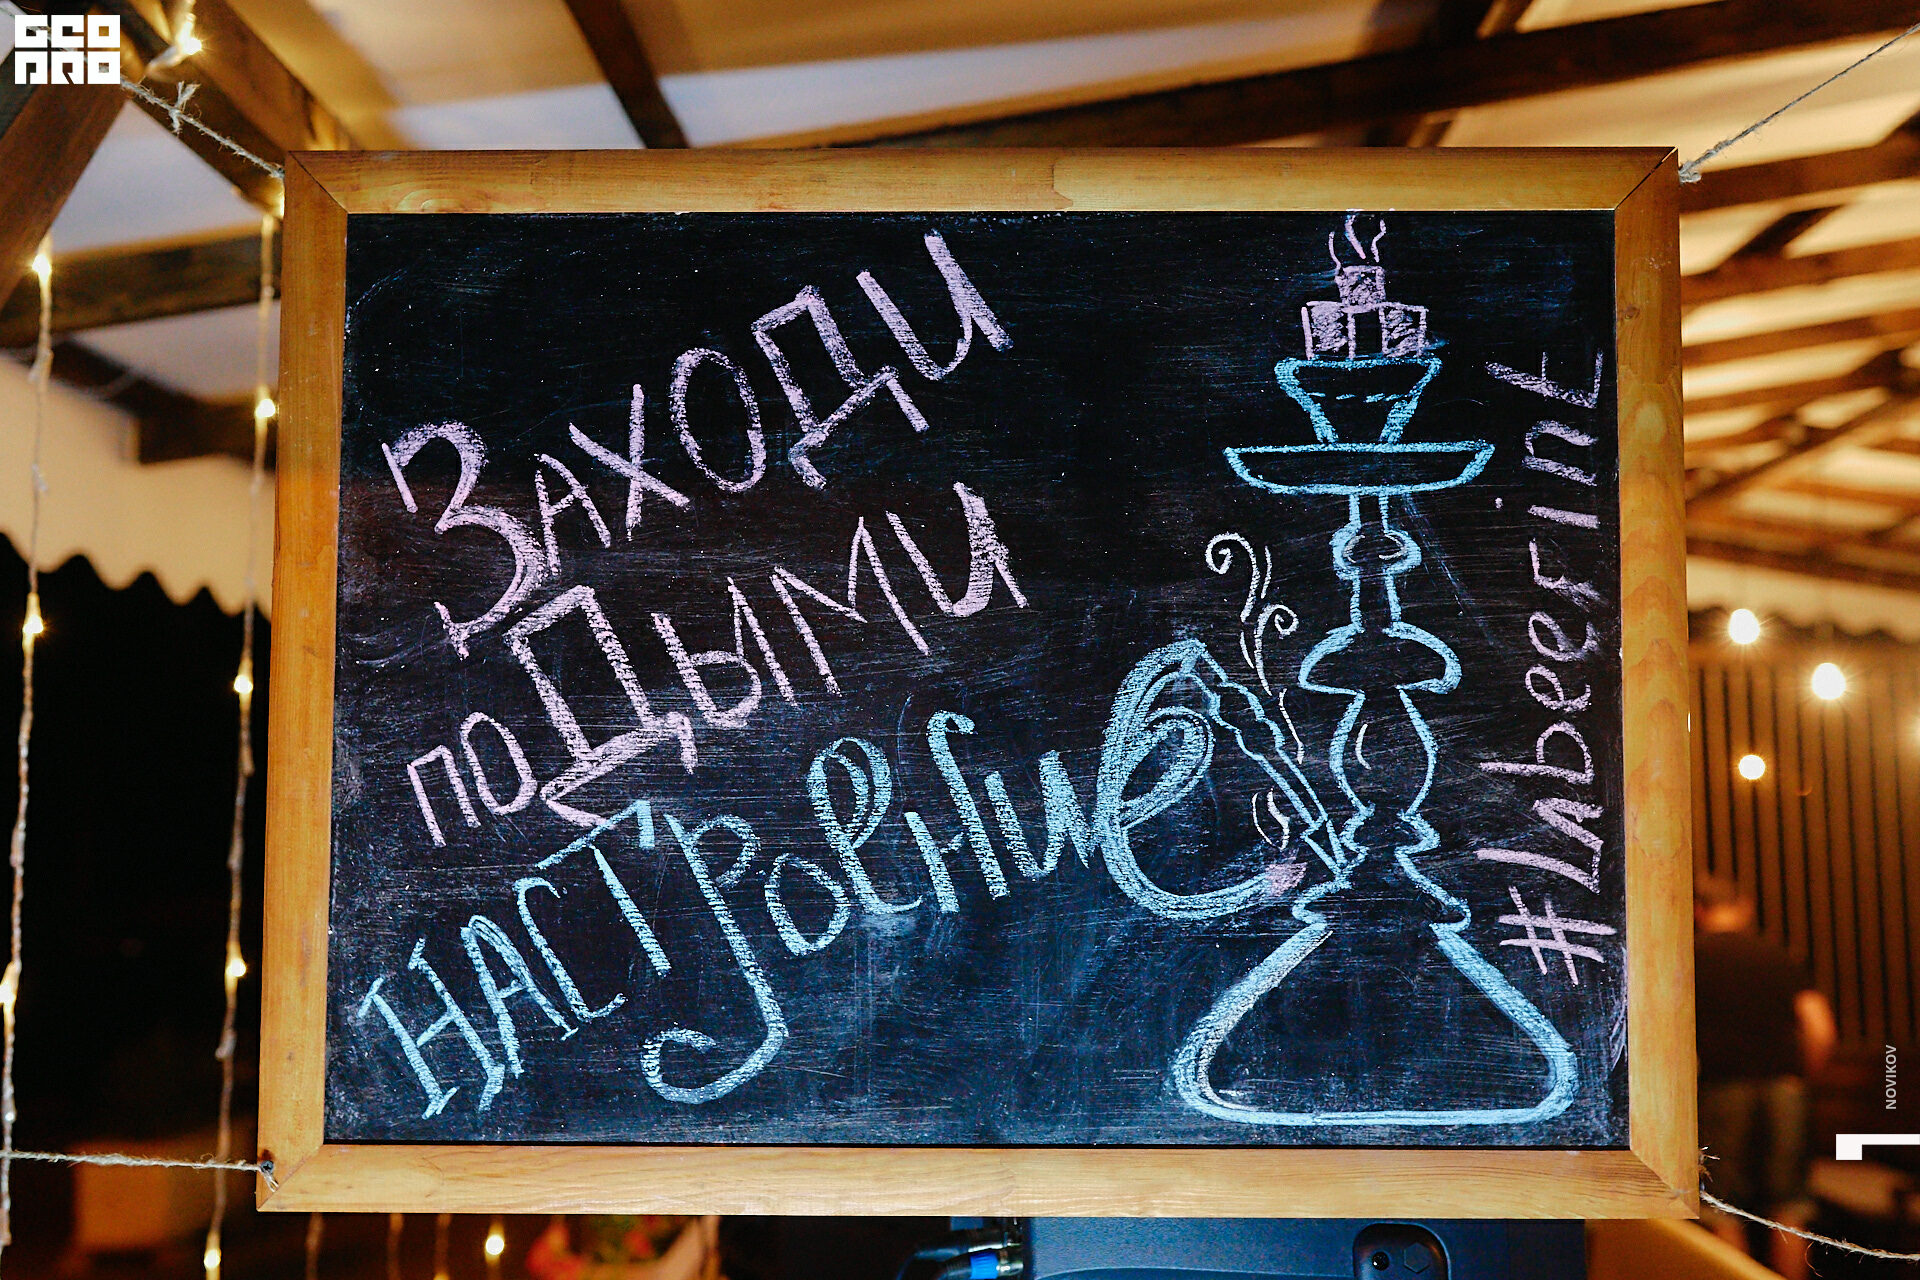 GEO
PRO
Заходи
поДыми
НАСТРоение
#Labeerint
NOVIKOV